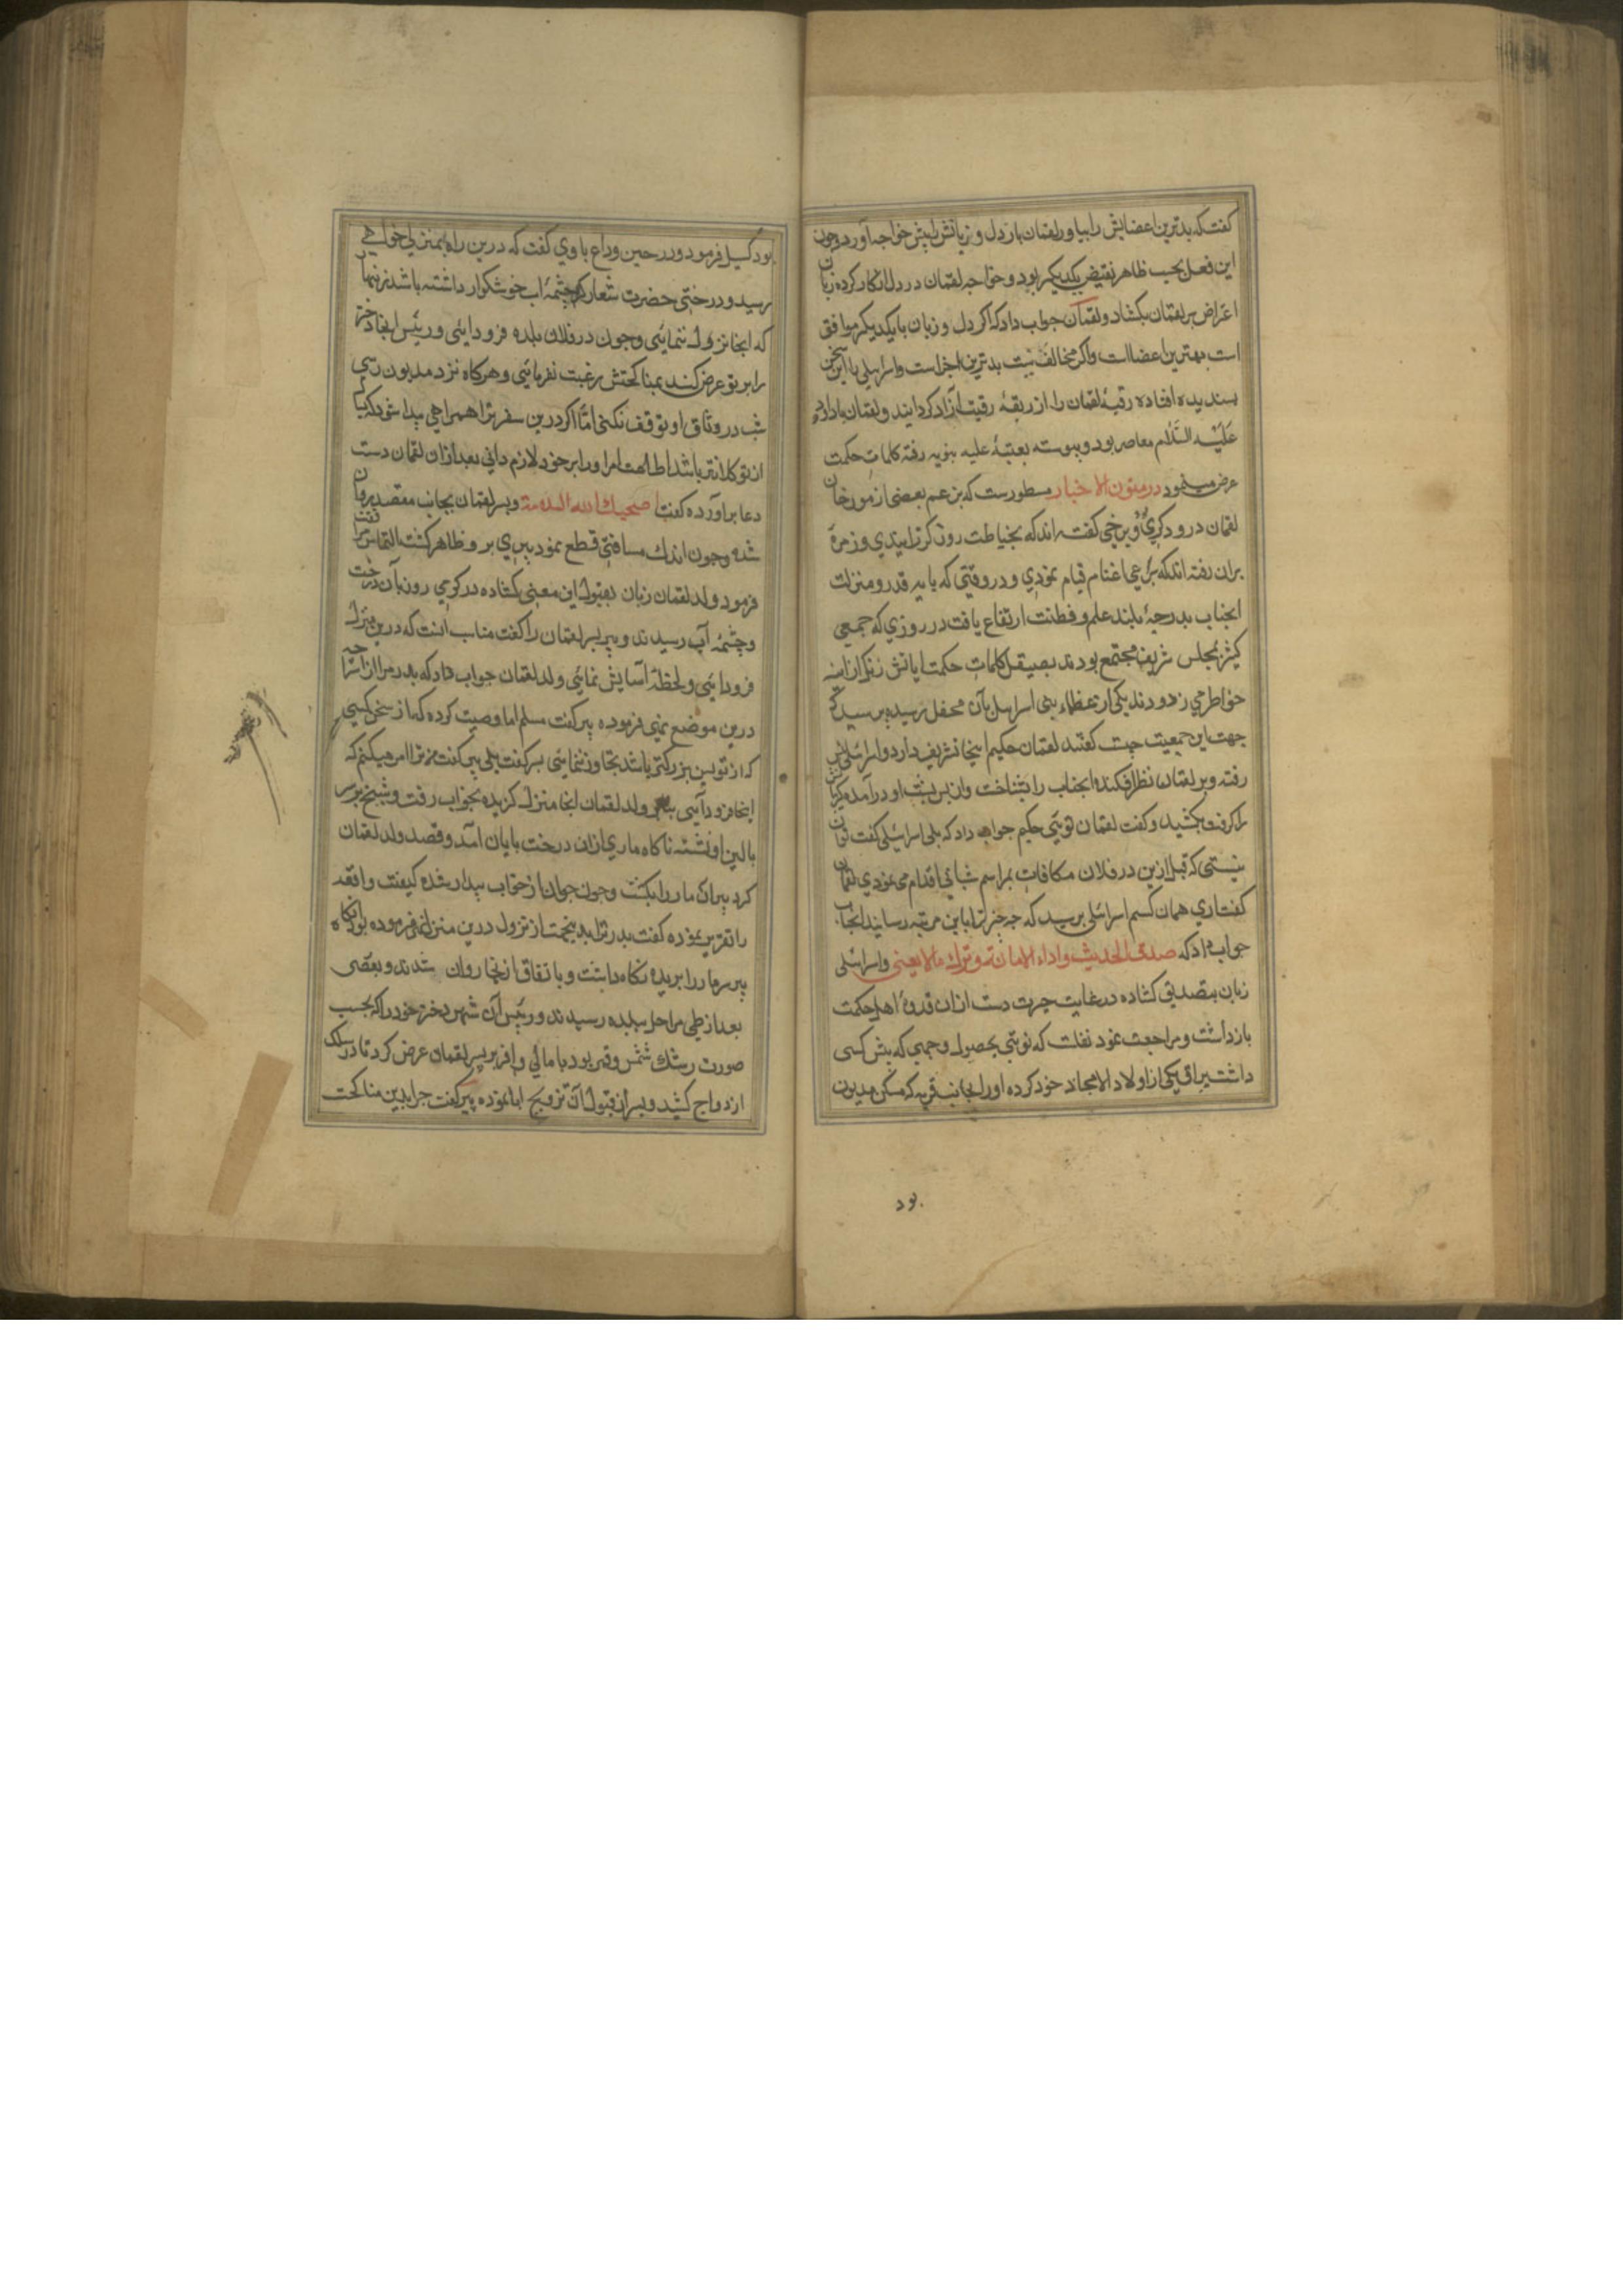 گفت که بدترین اعضایش را بیاور لقمان باز دل و زبانش را پیش خواجه آورد و چون
این فعل بحسب ظاهر نقیض یکدیگر بود و خواجه لقمان در دل انکار کرده زبان
اعتراض بر لقمان بگشاد و لقمان جواب داد که اگر دل و زبان با یکدیگر موافق
است بهترین اعضااست و اگر مخالف نیست بدترین اجزاست و اسرائیلی را این سخن
پسندیده افتاده رقبهٔ لقمان را از ربقهٔ رقیت آزاد گردانید و لقمان با داود
عَلَیْهِ السَّلام معاصر بود و پیوسته بعتبهٔ علیه نبویه رفته کلمات حکمت
عرض مینمود در متون الاخبار مسطورست که بزعم بعضی از مورخان
لقمان درودگری و برخی گفته اند که بخیاطت روز گذرانیدی و زمرهٔ
بران رفته اند که برعی اغنام قیام نمودی و در وقتی که پایه قدر و منزلت
آنجناب بدرجهٔ بلند علم و فطنت ارتفاع یافت در روزی که جمعی
کثیر بمجلس شریفش مجتمع بودند بصیقل کلمات حکمت ایاتش زنگ از اینه
خواطر می زدودند یکی از عظماء بنی اسرائیل بآن محفل رسیده پرسید که
جهت این جمعیت چیست گفتند لقمان حکیم اینجا تشریف دارد و اسرائیلی پیش
رفته و بر لقمان نظر افکنده آنجناب را بشناخت و از پس پشت او درآمده گریبانش
را گرفت بکشید و گفت لقمان توئی حکیم جواب داد که بلی اسرائیلی گفت تو آن
نیستی که قبل ازین در فلان مکان بمراسم شبانی اقدام می نمودی لقمان
گفت اری همان کسم اسرائیلی پرسید که چه چیز ترا باین مرتبه رسانید آنجناب
جواب داد که صدق الحدیث و اداء الامانة و ترک مالا یعنی و اسرائیلی
زبان بتصدیق گشاده در غایت حیرت دست ازان قدوهٔ اهل حکمت
بازداشت و مراجعت نمود نقلست که نوبتی بحصول وجهی که پیش کسی
داشت یکی از اولاد الامجاد خود کرده او را بجانب قریه که مسکن مدیون
بود
بود گسیل فرمود و در حین وداع با وی گفت که درین راه بمنزلی خواهی
رسید و درختی حضرت شعار که چشمهٔ اب خوشگوار داشته باشد زنهار
که آنجا نزول ننمایی و چون در فلان بلده فرود ایی و رئیس آنجا دختر
را بر تو عرض کند بمناکحتش رغبت نفرمائی و هرگاه نزد مدیون رسی
شب در وثاق او توقف نکنی امّا اگر درین سفر ترا همراهی پیدا شود که بسال
از تو کلانتر باشد اطاعت امر او را بر خود لازم دانی بعد ازان لقمان دست
دعا برآورده گفت اصحبک الله السلامة و پسر لقمان بجانب مقصد روان
شده و چون اندک مسافتی قطع نمود پیری برو ظاهر گشت التماس مرافقت
فرمود ولد لقمان زبان بقبول این معنی گشاده در گرمی روز بآن درخت
و چشمهٔ آب رسیدند و پیر پسر لقمان را گفت مناسب آنست که درین منزل
فرود ائی و لحظهٔ آسایش نمائی ولد لقمان جواب داد که پدر مرا از استراحت
درین موضع نهی فرموده پیر گفت مسلم اما وصیت کرده که از سخن کسی
که از تو بسن بزرگتر باشد تجاوز ننمایی پسر گفت بلی پیر گفت من ترا امر میکنم که
اینجا فرود آیی ولد لقمان آنجا منزل گزیده بخواب رفت و شیخ بر سر
بالین او نشسته ناگاه ماری ازان درخت پایان آمد و قصد ولد لقمان
کرد پیر آن مار را بکشت و چون جوان از خواب بیدار شده کیفیت واقعه
را تقریر نموده گفت پدر ترا بدین جهت از نزول درین منزل نهی فرموده بود آنگاه
پیر سر مار را بریده نگاه داشت و باتفاق از آنجا روان شدند و بعضی
بعد از طی مراحل ببلده رسیدند و رئیس آن شهر دختر خود را که بحسب
صورت رشک شمس و قمر بود با مالی وافر بر پسر لقمان عرض کرد تا در سلک
ازدواج کشید و پسر از قبول آن تزویج ابا نموده پیر گفت چرا بدین مناکحت